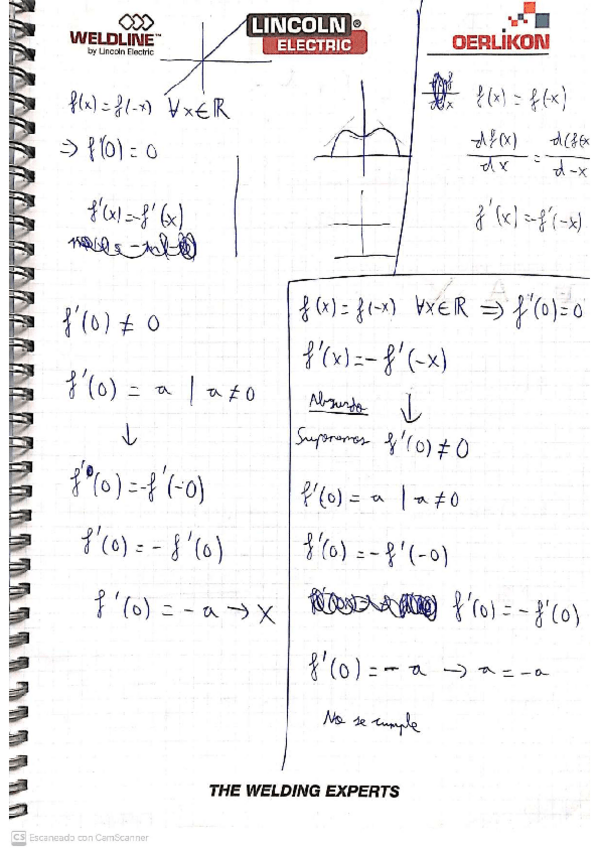 WELDLINE™
by Lincoln Electric
LINCOLN®
ELECTRIC
OERLIKON
f(x) = f(-x) ∀x∈ℝ
⇒ f'(0) = 0
f'(x) = -f'(x)
f(x) = f(-x)
df(x)/dx = d(f(x)/d-x
f'(x) = -f'(-x)
f'(0) ≠ 0
f'(0) = a | a ≠ 0
↓
f'(0) = -f'(-0)
f'(0) = - f'(0)
f'(0) = -a → X
f(x) = f(-x) ∀x∈ℝ ⇒ f'(0) = 0
f'(x) = - f'(-x)
Absurdo ↓
Suponemos f'(0) ≠ 0
f'(0) = a | a ≠ 0
f'(0) = -f'(-0)
f'(0) = -f'(0)
f'(0) = - a → a = -a
No se cumple
THE WELDING EXPERTS
CS Escaneado con CamScanner